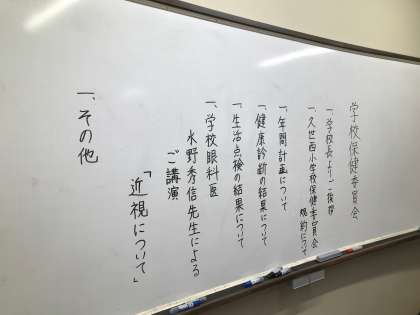 学校保健委員会
一、学校長よりご挨拶
一、久世西小学校保健委員会
規約について
一、年間計画について
一、健康診断の結果について
一、生活点検の結果について
一、学校眼科医
水野秀信先生による
ご講演
「近視について」
一、その他